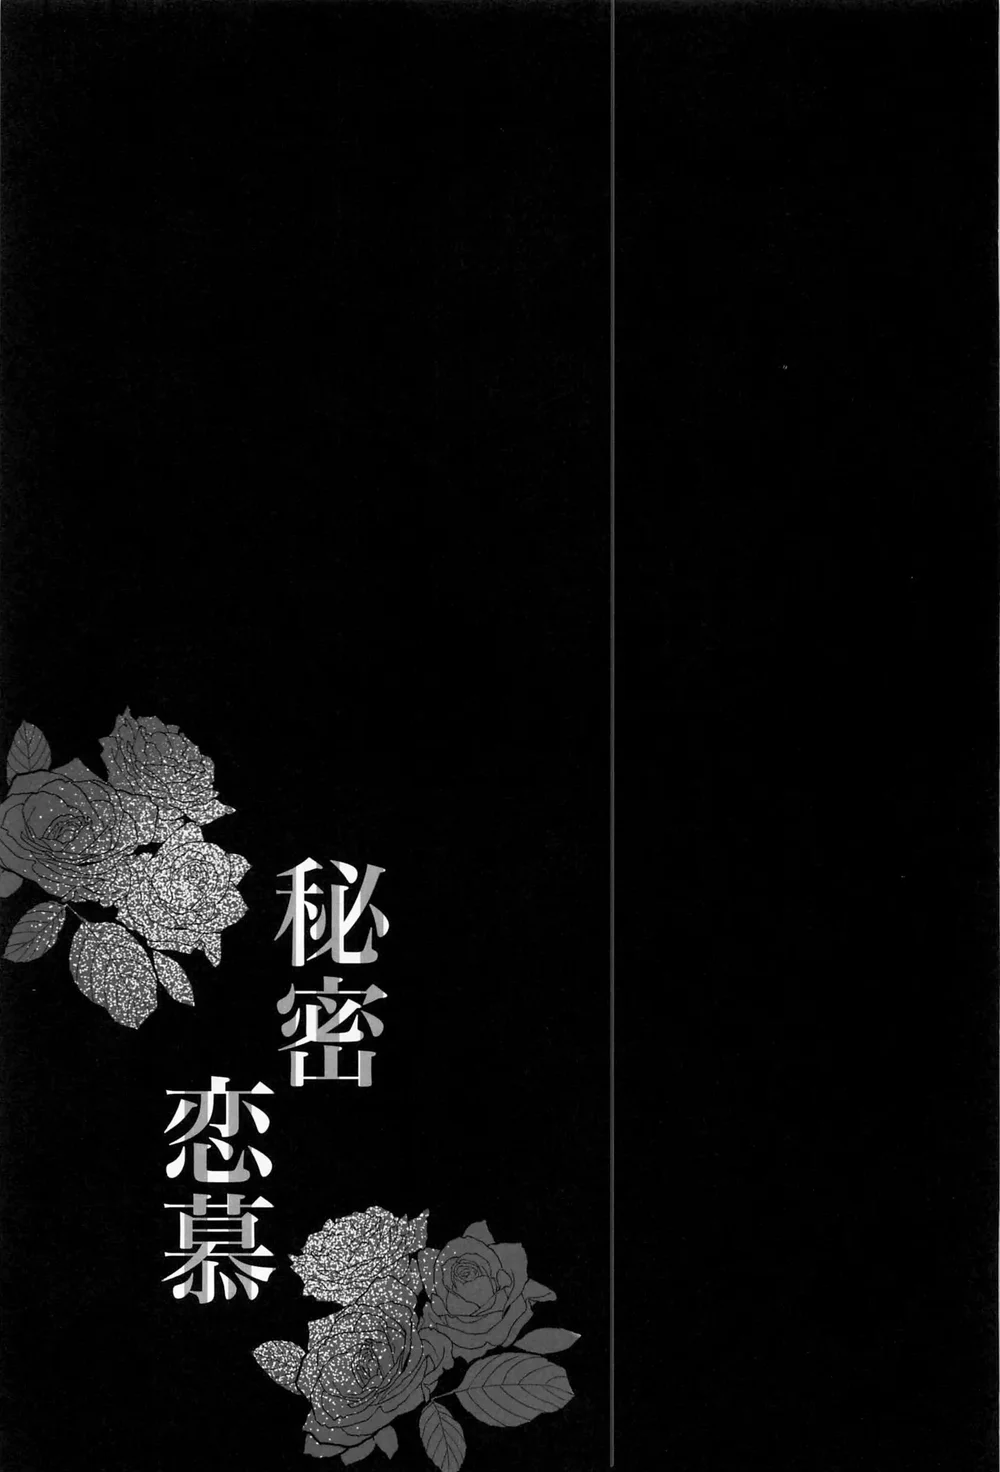 秘密
恋慕